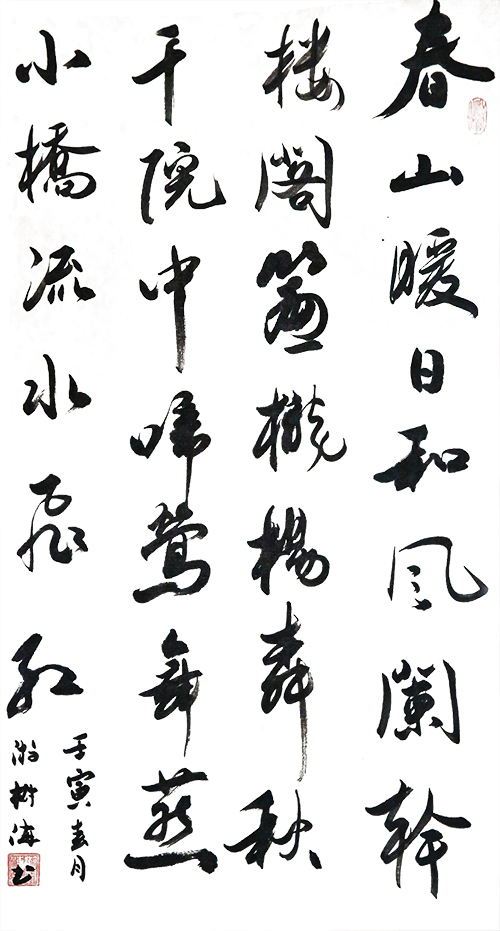 春山暖日和风闌幹
楼閣簾櫳楊秋
千院中啼鶯舞燕
小橋流水飛紅
壬寅春月
海书